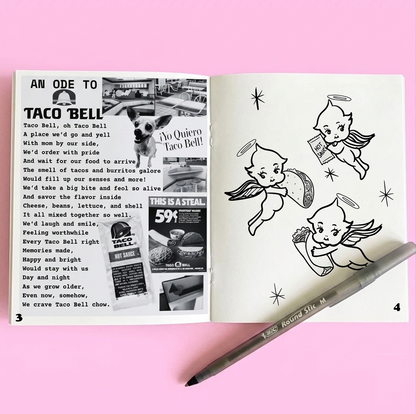 AN ODE TO
TACO BELL
Taco Bell, oh Taco Bell
A place we'd go and yell
With mom by our side,
We'd order with pride
And wait for our food to arrive
The smell of tacos and burritos galore
Would fill up our senses and more!
We'd take a big bite and feel so alive
And savor the flavor inside
Cheese, beans, lettuce, and shell
It all mixed together so well.
We'd laugh and smile,
Feeling worthwhile
Every Taco Bell right
Memories made,
Happy and bright
Would stay with us
Day and night
As we grow older,
Even now, somehow,
We crave Taco Bell chow.
¡Yo Quiero
Taco Bell!
THIS IS A STEAL.
59¢
TACO BELL
TACO
BELL
HOT SAUCE
3
HOT
SAUCE
4
BIC Round Stic M